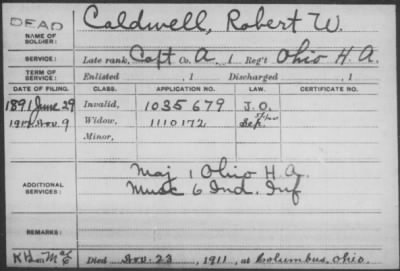 DEAD
NAME OF SOLDIER: Caldwell, Robert W.
SERVICE: Late rank, Capt Co. A, 1 Reg't Ohio H.A.
TERM OF SERVICE: Enlisted , 1 Discharged , 1
DATE OF FILING. CLASS. APPLICATION NO. LAW. CERTIFICATE NO.
1891 June 29 Invalid, 1035679 J.O.
Nov. 9 Widow, 1110172
Minor,
ADDITIONAL SERVICES: Maj 1 Ohio H.A.
Musc 6 Ind. Inf
REMARKS:
Died Nov. 23, 1911, at Columbus, Ohio.